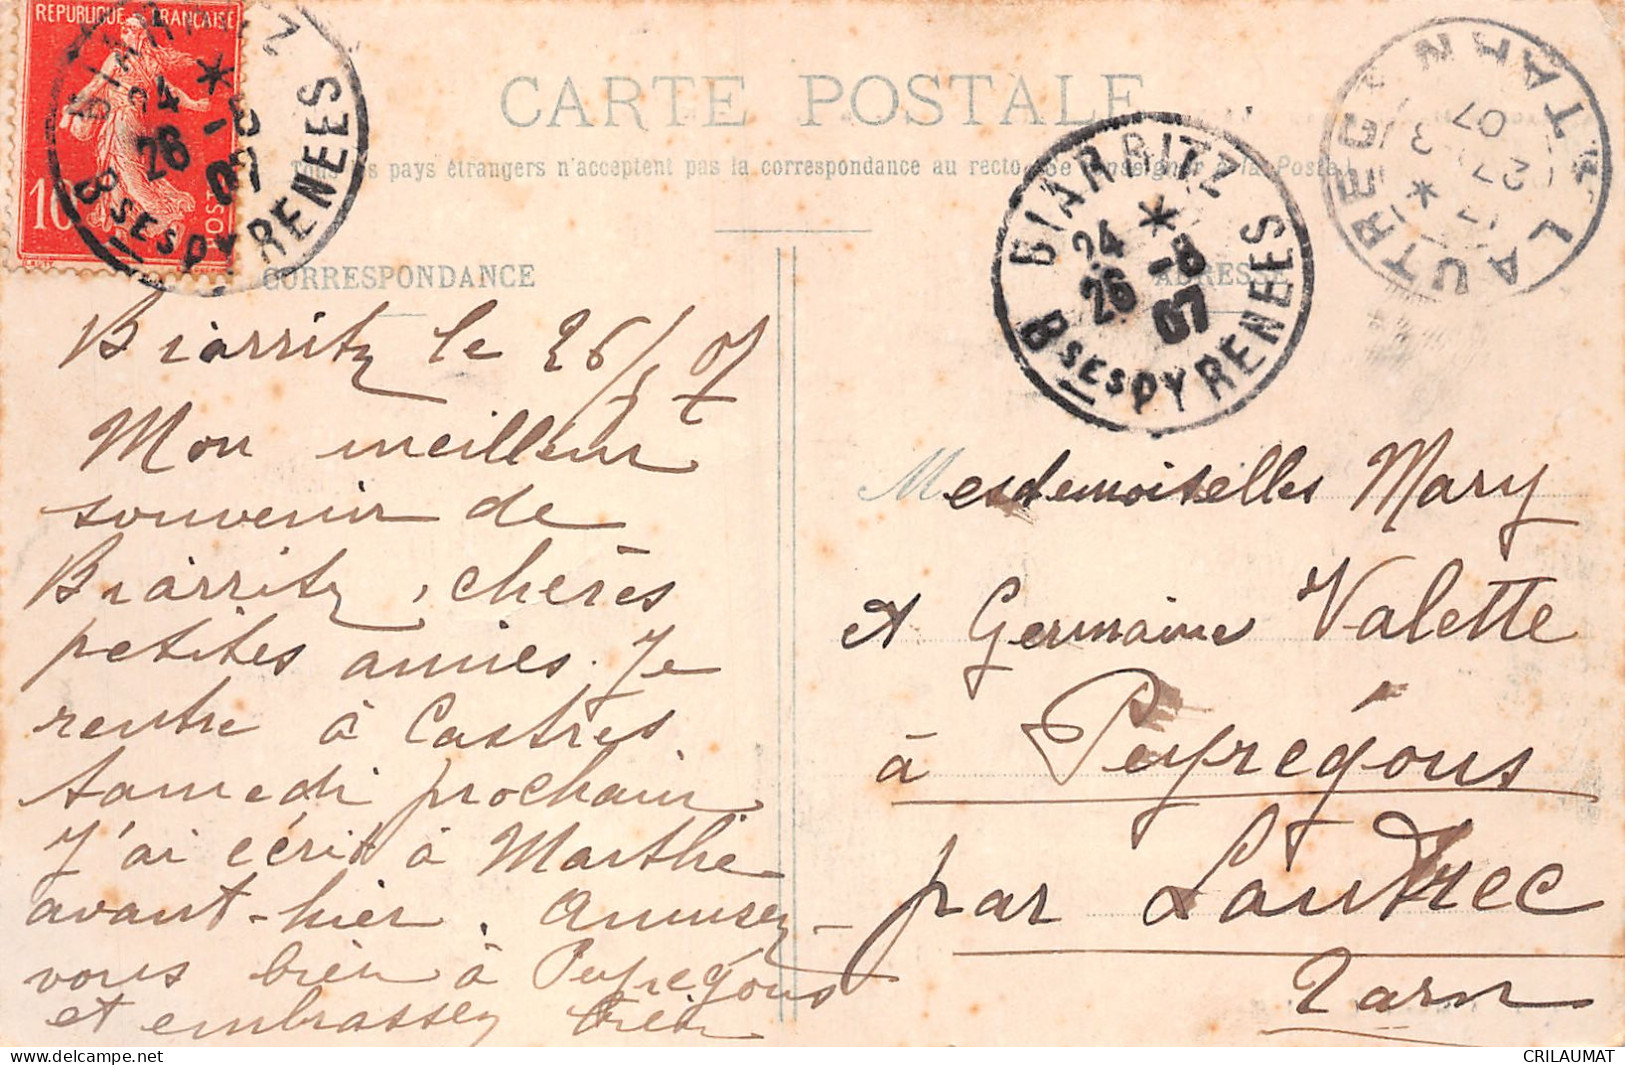 RÉPUBLIQUE FRANÇAISE
10
POSTES
BIARRITZ
24 *
26 -8
07
BSES PYRENEES
CARTE POSTALE
Tous les pays étrangers n'acceptent pas la correspondance au recto. Se renseigner à la Poste.
BIARRITZ
24 *
26 -8
07
BSES PYRENEES
LAUTREC TARN
17 *
27 -8
07
CORRESPONDANCE
ADRESSE
Biarritz le 26/8 07
Mon meilleur
souvenir de
Biarritz, chères
petites amies. Je
rentre à Castres
samedi prochain
J'ai écrit à Marthe
avant-hier. Amusez-
vous bien à Peyrégous
et embrassez bien
Mesdemoiselles Mary
et Germaine Valette
à Peyrégous
par Lautrec
Tarn
CRILAUMAT